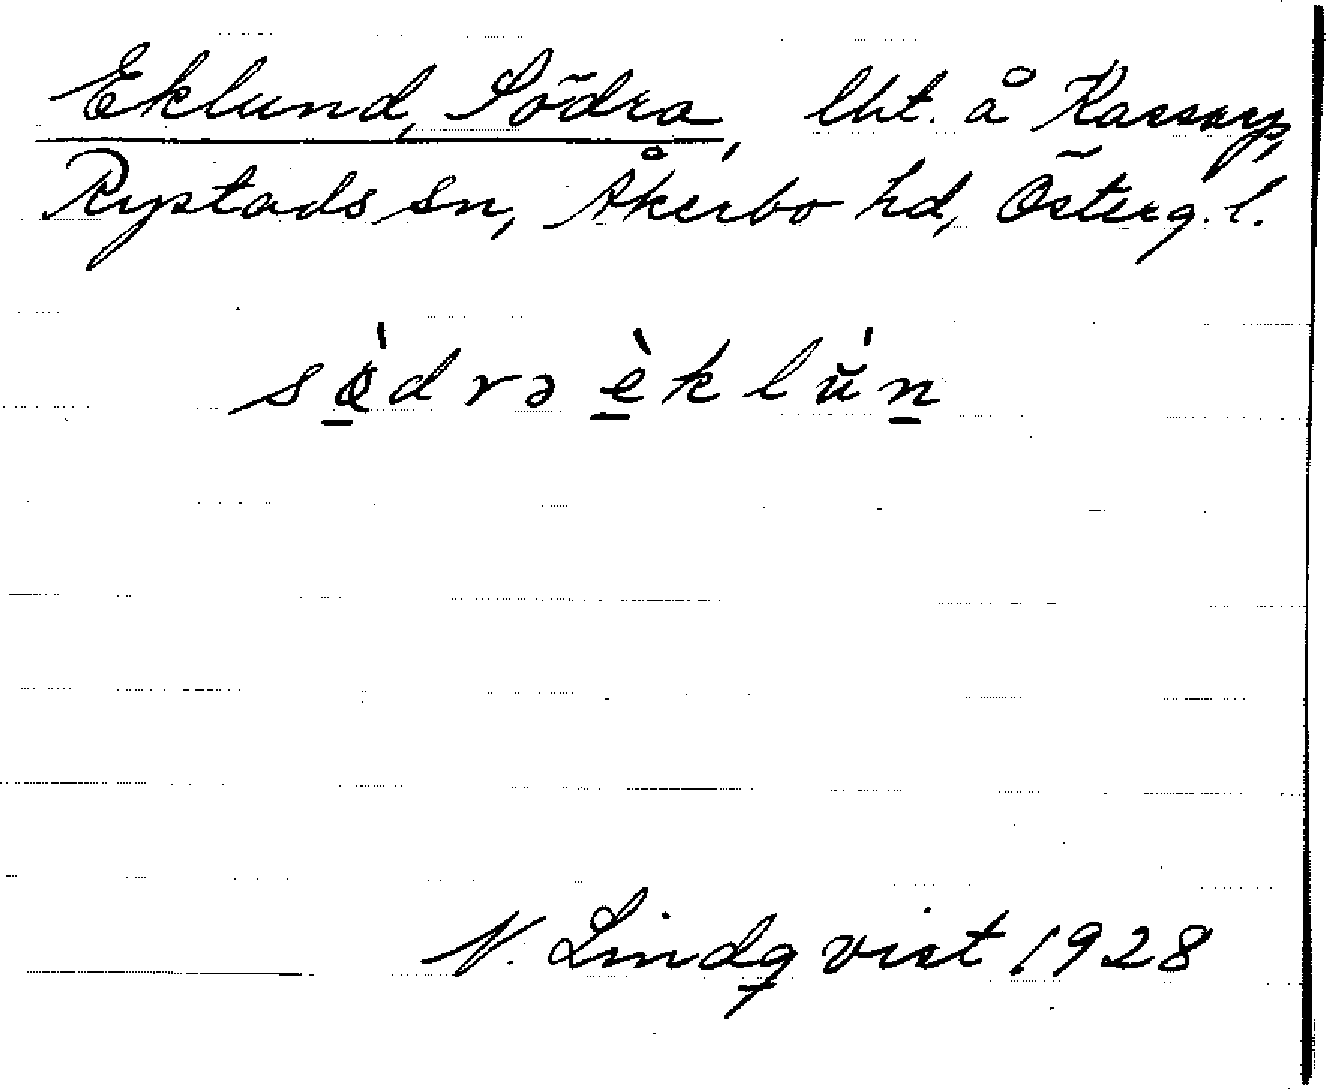 Eklund, Södra, lht. å Kassorp,
Rystads sn, Åkerbo hd, Österg. l.
sø̀drə èklŭ́n
N. Lindqvist 1928